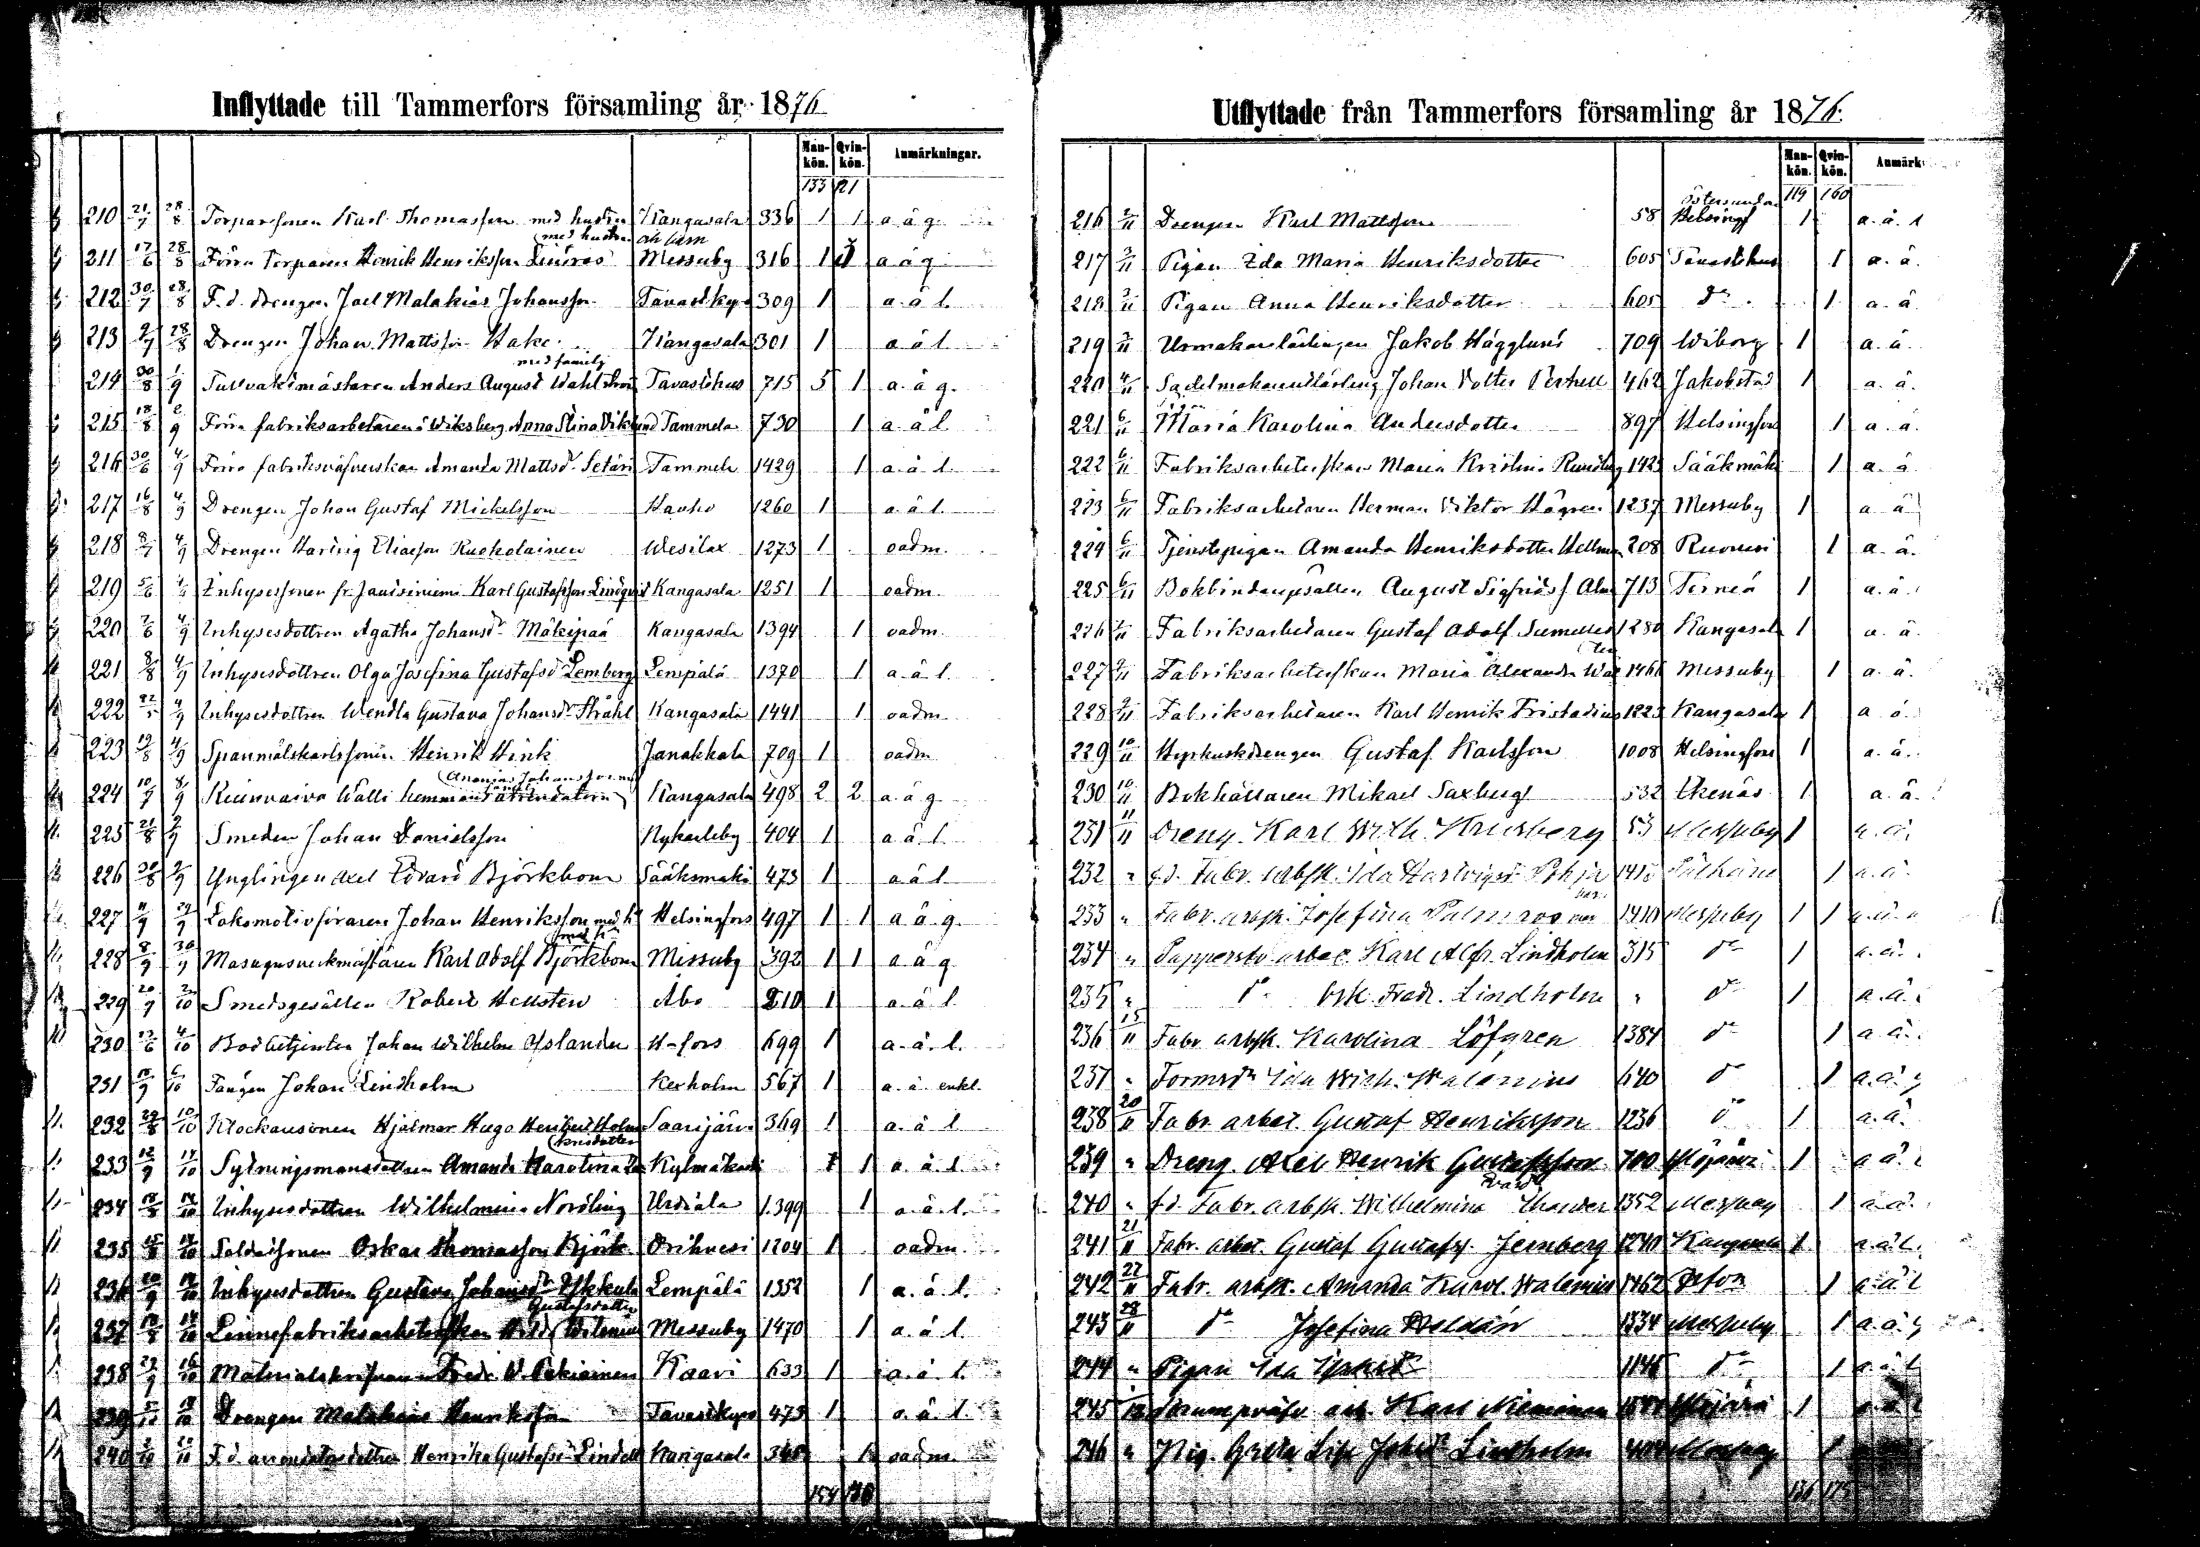 Inflyttade till Tammerfors församling år 1876
Mankön. Qvinkön. Anmärkningar.
133 121
210 21/7 28/8 Torparsonen Karl Thomasson med hustru Kangasala 336 1 1 a å g
med hustru och barn
211 17/6 28/8 Förra Torparen Henrik Henriksson Messuby 316 1 a å g
212 30/7 28/8 F. d. drengen Joel Malakias Johansson Tavastkyro 309 1 a å l.
213 9/7 28/8 Drengen Johan Mattsson Hake Kangasala 301 1 a å l
med familj
214 30/8 1/9 Tullvaktmästaren Anders August Wahlström Tavastehus 715 5 1 a. å g.
215 18/8 2/9 Förra fabriksarbetaren å Wiksberg Anna Stina Viklund Tammela 730 1 a. å l
216 30/6 4/9 Förra fabriksväfverskan Amanda Mattsdr Setäri Tammela 1429 1 a. å l.
217 16/8 4/9 Drengen Johan Gustaf Mickelsson Hauho 1260 1 a. å l.
218 8/7 4/9 Drengen Hartvig Eliasson Ruokolainen Wesilax 1273 1 oadm.
219 5/6 4/9 Inhysessonen fr. Karl Gustafsson Lindqvist Kangasala 1251 1 oadm.
220 7/6 4/9 Inhysesdottren Agatha Johansdr Mäkipää Kangasala 1394 1 oadm.
221 8/8 4/9 Inhysesdottren Olga Josefina Gustafsdr Lemberg Lempälä 1370 1 a å l.
222 22/5 4/9 Inhysesdottren Wendla Gustava Johansdr Stråhl Kangasala 1441 1 oadm.
223 19/8 4/9 Spanmålskarlssonen Henrik Hink Janakkala 709 1 oadm
224 10/7 8/9 Walli hemmans Kangasala 498 2 2 a. å g
225 21/8 9/9 Smeden Johan Danielsson Nykarleby 404 1 a å l.
226 30/8 9/9 Ynglingen Axel Edvard Björkbom Sääksmäki 473 1 a å l
227 11/9 29/9 Lokomotivföraren Johan Henriksson med h. Helsingfors 497 1 1 a å g.
228 8/9 30/9 Masugnsverkmästaren Karl Adolf Björkbom Messuby 392 1 1 a. å g
229 20/9 2/10 Smedsgesällen Robert Hellsten Åbo 210 1 a. å l
230 13/6 4/10 Bodbetjenten Johan Wilhelm Åslander H-fors 699 1 a. å. l.
231 18/9 6/10 Fången Johan Lindholm Kexholm 567 1 a. å. enkl.
232 29/8 10/10 Klockaresonen Hjalmar Hugo Heribert Holm Saarijärvi 369 1 a. å l
233 12/9 14/10 Sytningsmansdottren Amanda Karolina Kylmäkoski 1 1 a. å. l
234 18/8 14/10 Inhysesdottren Wilhelmina Nordling Urdiala 1399 1 a. å. l.
235 15/8 14/10 Soldatsonen Oskar Thomasson Björk Orihvesi 1204 1 oadm.
236 20/9 14/10 Inhysesdottren Gustava Johansdr Lempälä 1352 1 a. å. l.
Gustafsdotter
237 18/8 14/10 Linnefabriksarbeterskan Messuby 1470 1 a. å l
238 29/9 16/10 Kaavi 633 1 a. å l.
239 18/10 Drengen Malakias Henriksson Tavastkyro 473 1 a. å. l.
240 2/10 20/10 F. d. arrendatorsdottren Henrika Gustafsdr Lindell Kangasala 345 1 oadm.
154
Utflyttade från Tammerfors församling år 1876.
Mankön. Qvinkön. Anmärk
119 160
216 2/11 Drengen Karl Mattsson 58 Östersundom Helsingf 1 a. å. l
217 3/11 Pigan Ida Maria Henriksdotter 605 Tavastehus 1 a. å.
218 3/11 Pigan Anna Henriksdotter 605 do 1 a. å
219 3/11 Urmakarelärlingen Jakob Hägglund 709 Wiborg 1 a. å.
220 4/11 Sadelmakarelärling Johan Volter Perthell 462 Jakobstad 1 a. å.
221 6/11 Maria Karolina Andersdotter 897 Helsingfors 1 a. å.
222 6/11 Fabriksarbeterskan Maria Kristina Rundberg 1423 Sääksmäki 1 a. å
223 6/11 Fabriksarbetaren Herman Viktor Hägren 1237 Messuby 1 a å
224 6/11 Tjenstepigan Amanda Henriksdotter Hellman 208 Ruovesi 1 a. å.
225 6/11 Bokbindaregesällen August Sigfridss. Alm 713 Torneå 1 a. å.
226 7/11 Fabriksarbetaren Gustaf Adolf Sumelius 1280 Kangasala 1 a. å.
227 9/11 Fabriksarbeterskan Maria Alexandra 1466 Messuby 1 a. å.
228 9/11 Fabriksarbetaren Karl Henrik Fristadius 1223 Kangasala 1 a å
229 10/11 Hyrkuskdrengen Gustaf Karlsson 1008 Helsingfors 1 a. å.
230 10/11 Bokhållaren Mikael Saxberg 532 Ekenäs 1 a. å.
231 11/11 Dreng. Karl Wilh. Krusberg 53 Messuby 1 a. å.
232 " f.d. Fabr. arbsk. Ida Hartvigsdr Pohja 1410 Pälkäne 1 a. å.
233 " Fabr. arbsk. Josefina Palmroos 1410 Messuby 1 1 a. å
234 " Pappersbr. arbet. Karl Alfr. Lindholm 315 do 1 a. å.
235 " do Osk. Fredr. Lindholm " do 1 a. å.
236 15/11 Fabr. arbsk. Karolina Löfgren 1384 do 1 a. å.
237 " Formsdr Ida Wilh. Walenius 640 do 1 a. å. g
238 20/11 Fabr. arbet. Gustaf Henriksson 1236 do 1 a. å.
239 " Dreng. Axel Henrik Gustafsson 700 Ylöjärvi 1 a å. l
240 " f.d. Fabr. arbsk. Wilhelmina Thander 1352 Messuby 1 a. å.
241 21/11 Fabr. arbet. Gustaf Gustafss. Jernberg 1240 Kangasala 1 a. å l.
242 22/11 Fabr. arbsk. Amanda Karol. Walenius 1462 H:fors 1 a. å l
243 28/11 do Josefina Weldén 1334 Messuby 1 a. å. g
244 " Pigan Ida 1145 do 1 a. å l
245 Karl Nieminen Ylöjärvi 1
246 " Pig. Greta Lisa Johansdr Lindholm 404 Messuby 1
136 175